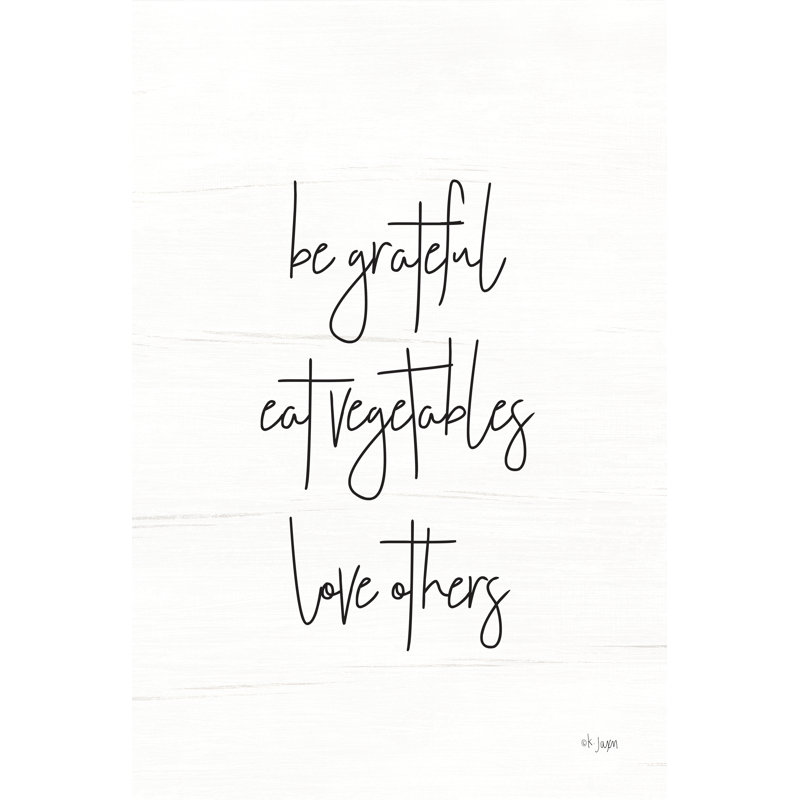 be grateful
eat vegetables
love others
©K. Jaxn